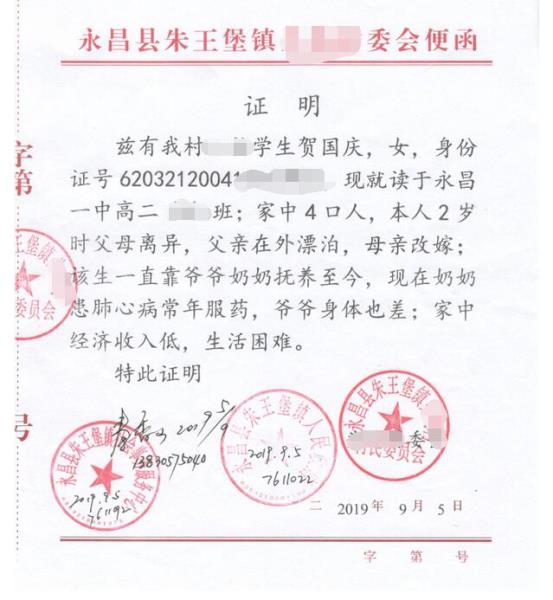 永昌县朱王堡镇 委会便函
证 明
兹有我村 学生贺国庆，女，身份
证号62032120041 现就读于永昌
一中高二 班；家中4口人，本人2岁
时父母离异，父亲在外漂泊，母亲改嫁；
该生一直靠爷爷奶奶抚养至今，现在奶奶
患肺心病常年服药，爷爷身体也差；家中
经济收入低，生活困难。
特此证明
字第
号
王堡镇
委员会
2019 5/9
13830575040
永昌县朱王堡镇 服务中心
2019.9.5
7611092
永昌县朱王堡镇人民
2019.9.5
7611022
永昌县朱王堡镇
村民委员会
二 2019年 9月 5日
字 第 号